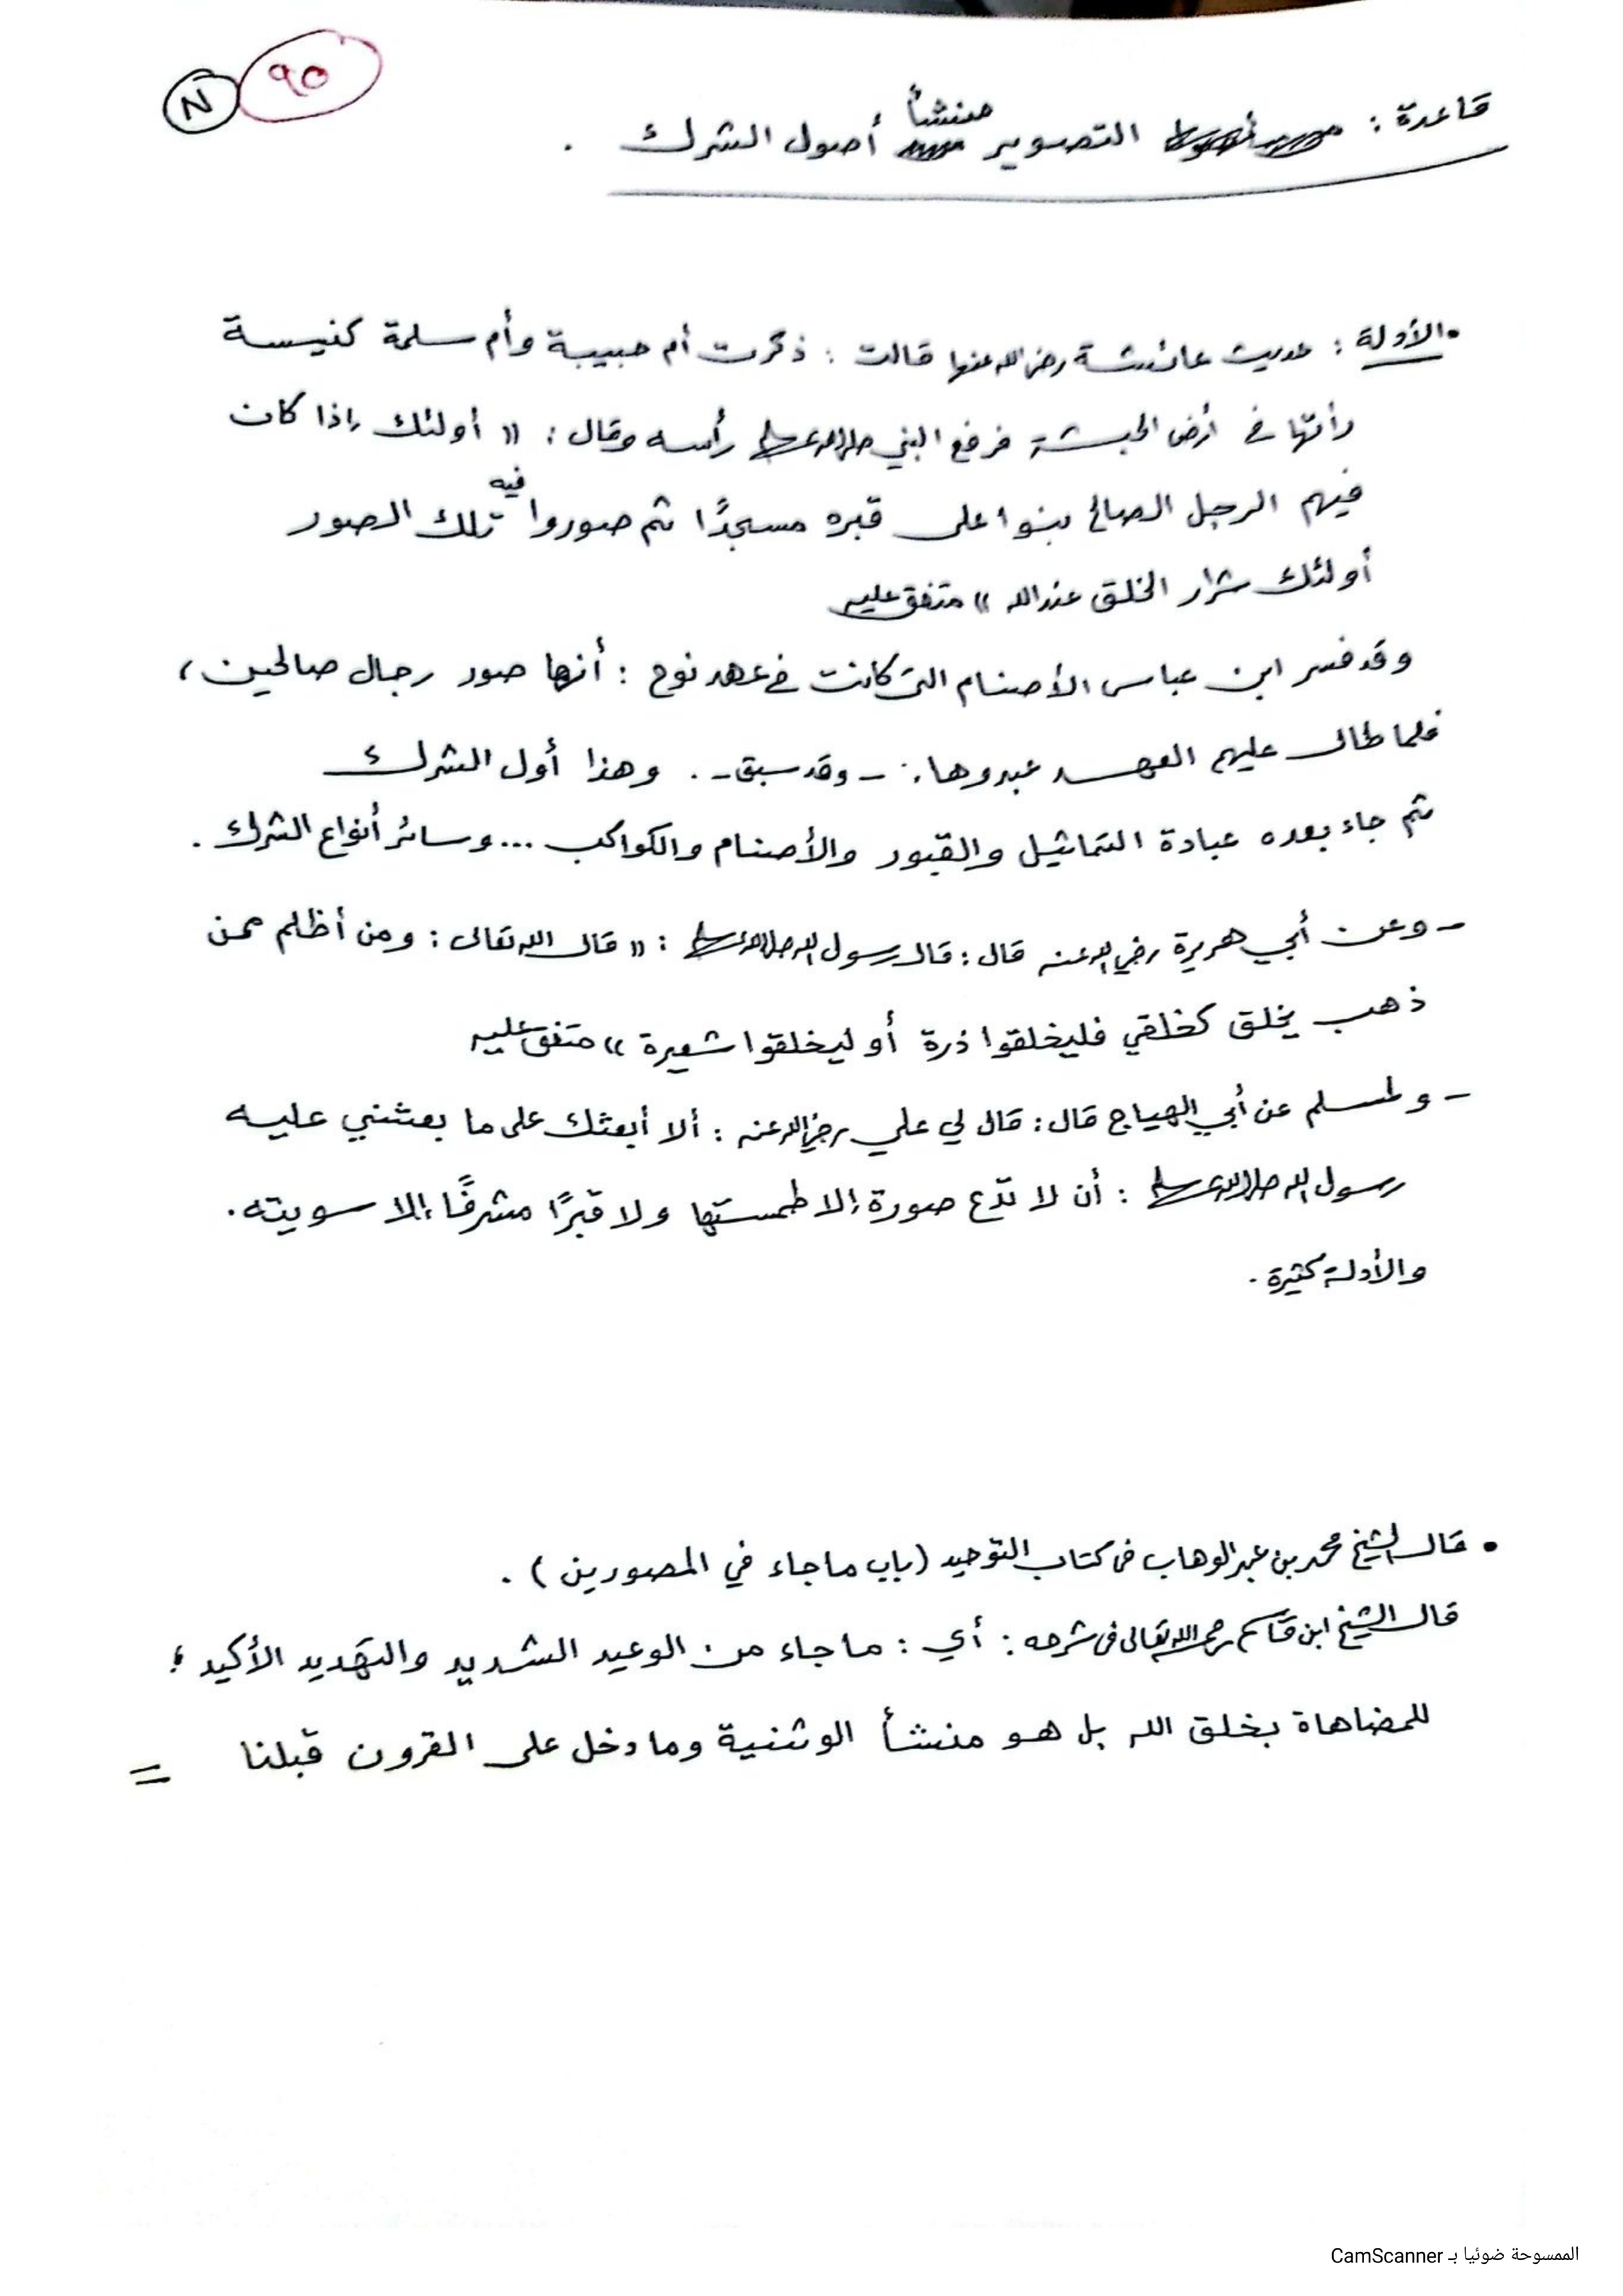 N ٩٥
قاعدة : التصوير منشأ أصول الشرك .
• الأدلة : حديث عائشة رضي الله عنها قالت : ذكرت أم حبيبة وأم سلمة كنيسة
رأتها في أرض الحبشة فرفع النبي صلى الله عليه وسلم رأسه وقال : « أولئك إذا كان
فيهم الرجل الصالح بنوا على قبره مسجدًا ثم صوروا فيه تلك الصور
أولئك شرار الخلق عند الله » متفق عليه
وقد فسر ابن عباس الأصنام التي كانت في عهد نوح : أنها صور رجال صالحين ،
فلما طال عليهم العهد عبدوها . - وقد سبق - . وهذا أول الشرك
ثم جاء بعده عبادة التماثيل والقبور والأصنام والكواكب ... وسائر أنواع الشرك .
- وعن أبي هريرة رضي الله عنه قال : قال رسول الله صلى الله عليه وسلم : « قال الله تعالى : ومن أظلم ممن
ذهب يخلق كخلقي فليخلقوا ذرة أو ليخلقوا شعيرة » متفق عليه
- ولمسلم عن أبي الهياج قال : قال لي علي رضي الله عنه : ألا أبعثك على ما بعثني عليه
رسول الله صلى الله عليه وسلم : أن لا تدع صورة إلا طمستها ولا قبرًا مشرفًا إلا سويته .
والأدلة كثيرة .
• قال الشيخ محمد بن عبد الوهاب في كتاب التوحيد ( باب ما جاء في المصورين ) .
قال الشيخ ابن قاسم رحمه الله تعالى في شرحه : أي : ما جاء من الوعيد الشديد والتهديد الأكيد ؛
للمضاهاة بخلق الله بل هو منشأ الوثنية وما دخل على القرون قبلنا =
الممسوحة ضوئيا بـ CamScanner